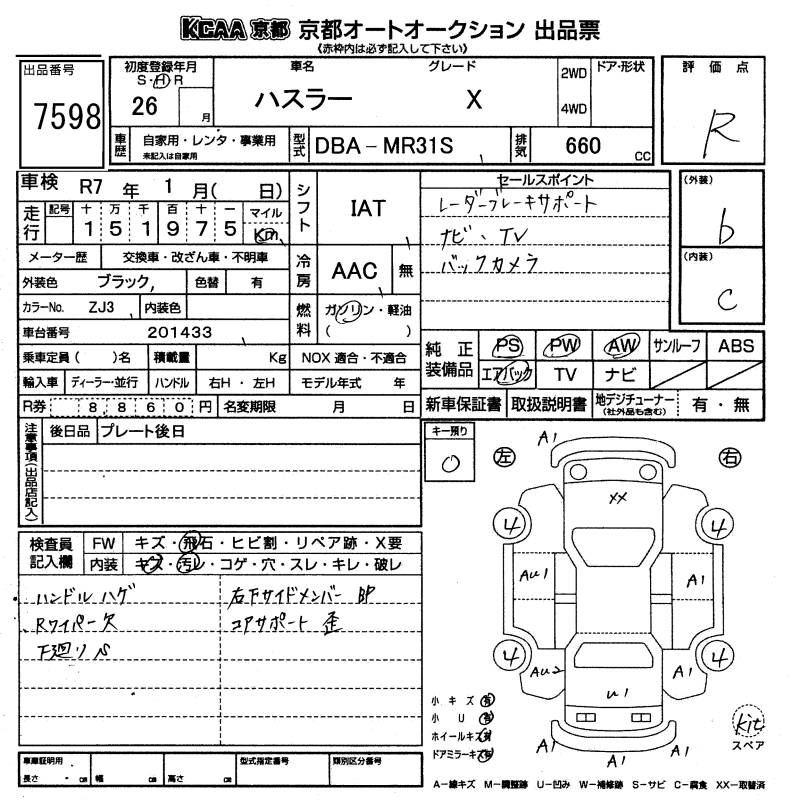 KCAA 京都 京都オートオークション 出品票
《赤枠内は必ず記入して下さい》
出品番号
7598
初度登録年月
S・H・R
26 月
車名 グレード
ハスラー X
2WD
4WD
ドア・形状
評価点
R
車歴 自家用・レンタ・事業用
未記入は自家用
型式 DBA－MR31S
排気 660 CC
車検 R7 年 1 月( 日)
走行 記号 十 万 千 百 十 一 マイル
1 5 1 9 7 5 Km
メーター歴 交換車・改ざん車・不明車
外装色 ブラック 色替 有
カラーNo. ZJ3 内装色
車台番号 201433
乗車定員( )名 積載量 Kg NOX 適合・不適合
輸入車 ディーラー・並行 ハンドル 右H・左H モデル年式 年
R券 8,860円 名変期限 月 日
シフト IAT
冷房 AAC 無
燃料 ガソリン・軽油
( )
セールスポイント
レーダーブレーキサポート
ナビ、TV
バックカメラ
(外装)
b
(内装)
C
純正装備品 PS PW AW サンルーフ ABS
エアバック TV ナビ
新車保証書 取扱説明書 地デジチューナー(社外品も含む) 有・無
注意事項(出品店記入)
後日品 プレート後日
キー預り
0
検査員記入欄
FW キズ・飛石・ヒビ割・リペア跡・X要
内装 キズ・汚レ・コゲ・穴・スレ・キレ・破レ
ハンドルハゲ 右下サイドメンバー BP
Rワイパー欠 コアサポート 歪
下廻りS
左 右
A1
XX
4 4
AU1 A1
4 4
AU2 A1
U1
A1 A1 A1
小キズ 有
小U 有
ホイールキズ 有
ドアミラーキズ 有
kit
スペア
車庫証明用
長さ ・ cm 幅 cm 高さ cm
型式指定番号 類別区分番号
A－線キズ M－調整跡 U－凹み W－補修跡 S－サビ C－腐食 XX－取替済